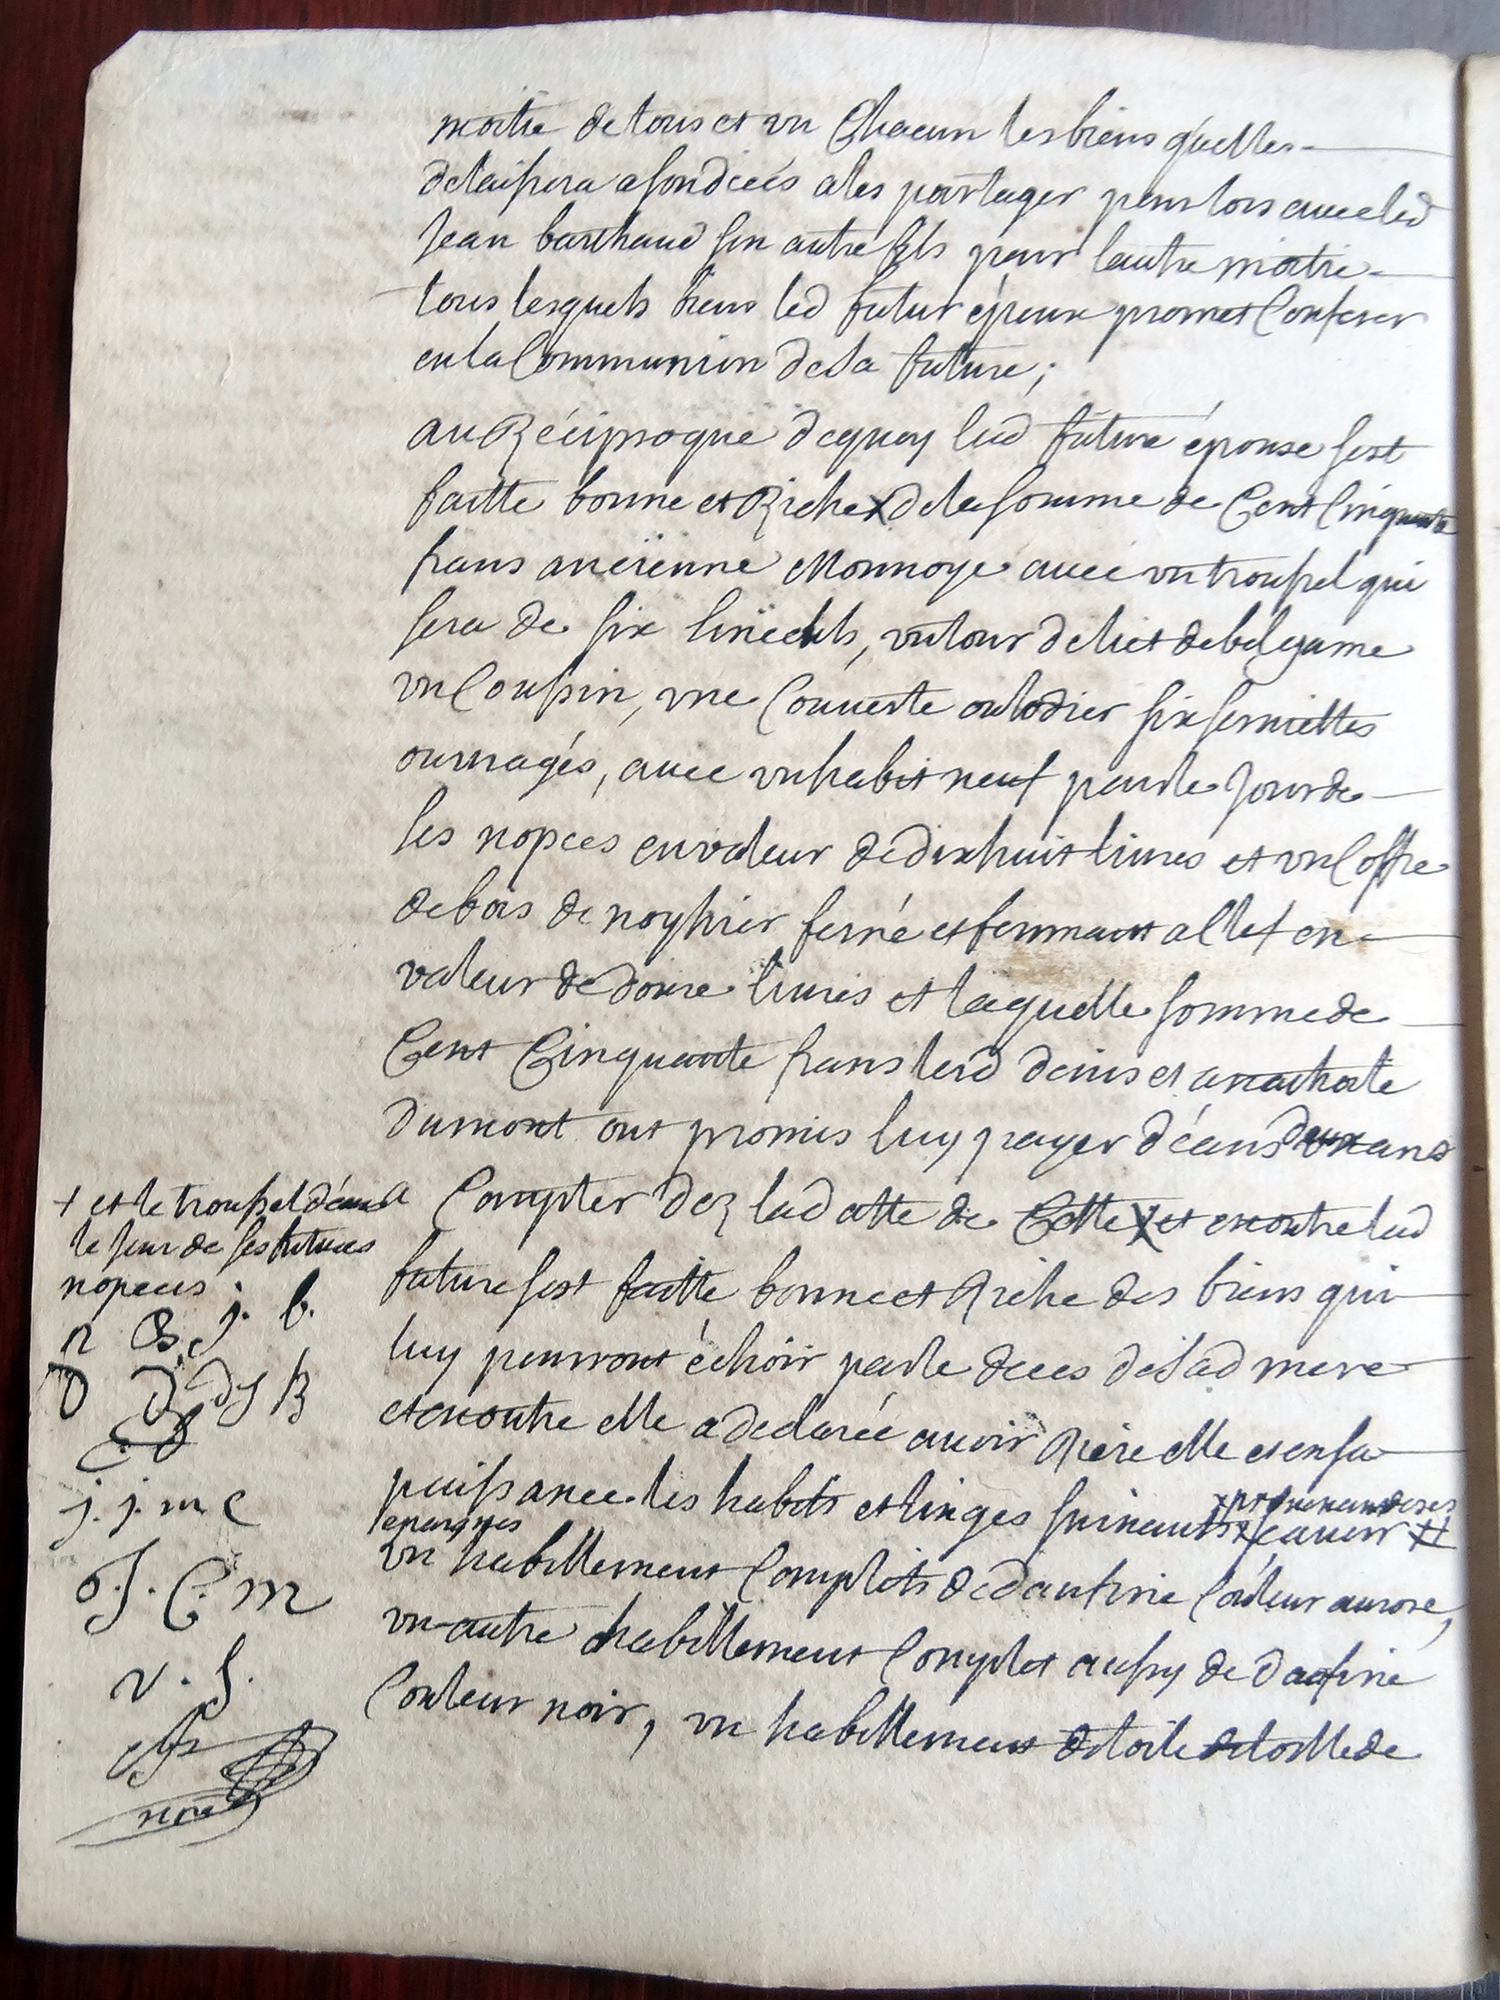 moitie de tous et vn Chacun les biens quelles
delaissera a son deces a les partager pour lors auec led
Jean barthaud son autre fils pour lautre moitie
tous lesquels biens led futur époux promet Conferer
en la Communion de sa future ;
au Réciproque dequoy lad future épouse sest
faitte bonne et Riche de la somme de Cent Cinquante
frans anciënne Monnoye auec vn troussel qui
sera de six linceuls, vn tour de lict de belgame
vn Coussin, vne Couuerte ou lodier six seruiettes
ouuragés, auec vn habit neuf pour le Jour de
ses nopces en valeur de dixhuit liures et vn Coffre
de bois de noyhier ferré et fermant a clef en
valeur de douze liures et laquelle somme de
Cent Cinquante frans lesd denis et
dumont ont promis luy payer déans deux ans
a Compter dez la datte de Cette et en outre lad
future sest faitte bonne et Riche des biens qui
luy pouront échoir par le deces de sad mere
et en outre elle a declarée auoir Riere elle et en sa
puissance les habits et linges suiuants prouenant de ses
epargnes scauoir
vn habillement Complets de daufine Couleur aurore,
vn autre habillement Complet aussy de daufine
Couleur noir, vn habillement de toile de
+ et le troussel déans
le jour de ses futures
nopces
n B j. b.
D D dy B
j. j. m c
o. J. C. m
v. f.